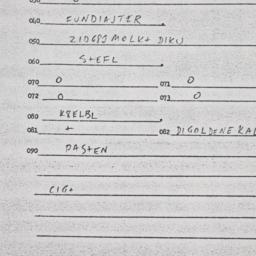 040 FUNDIASTER
050 21D683 MOLK+ DIKU
060 S+EFL
070 0 071 0
072 0 073 0
080 K8ELBL
081 + 082 DIGOLDENE KAL
090 PAS+EN
CIG+